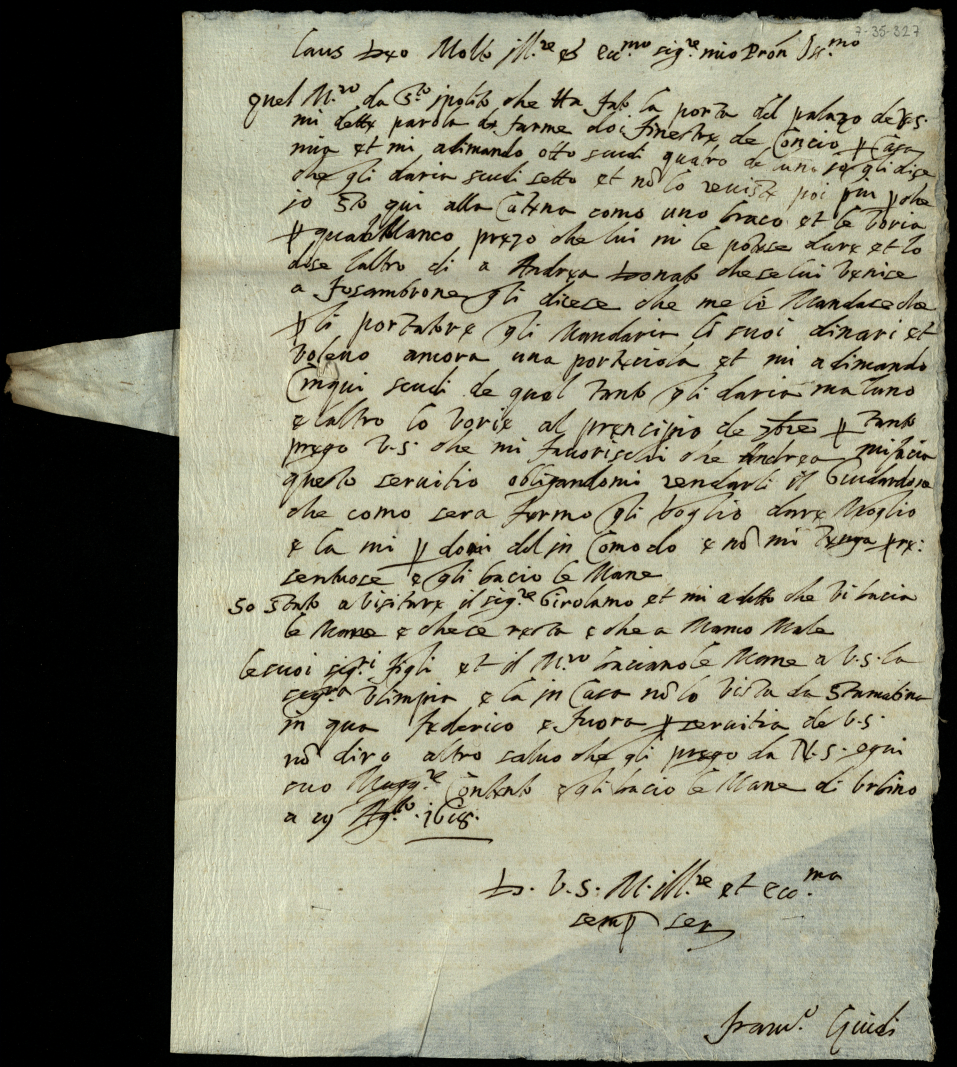 7-35-327
Laus Deo Molto ill.re et ecc.mo sig.re mio Pron
quel M.ro da S.to ipolito che ha fato la porta del palazo de V.S.
mi dette parola de farme doi finestre de Concio p Casa
mia et mi adimando otto scudi quatro de luna io gli dise
che gli daria scudi sette et nō lo revisto poi piu p che
io sto qui alla Catena como uno braco et le voria
p qualche Manco prezo che lui mi le potese dare et lo
dise laltro di a Andrea Donato che se lui venise
a fosambrone gli dicese che me le Mandase che
p li portatore gli Mandaria li suoi dinari et
voleuo ancora una porticiola et mi adimando
Cinqui scudi de qual tanto gli daria ma luno
e laltro lo vorie al prencipio de 7bre p tanto
prego V.S. che mi favorischi che Andrea mi facia
questo servitio obligandomi rendarli il Guidardone
che como sera fermo gli voglio dare Moglio
e la mi p doni del in Comodo e nō mi tenga pre:
sentuose e gli bacio le Mane
So stato a visitare il sig.re Girolamo et mi a ditto che vi bacia
le Mane e che se resta e che a Manco Male
le suoi sig.ri figli et il M.ro baciano le Mane a V.S. la
sig.ra Olimpia e la in Casa nō lo vista da stamatina
in qua federico e fuora p servitia de V.S.
nō diro altro salvo che gli prego da N.S. ogni
suo Magg.re Contento e gli bacio le Mane di Urbino
a Ag.to 1618.
D. V.S. M. ill.re et ecc.ma
semp ser
franc.o Guidi